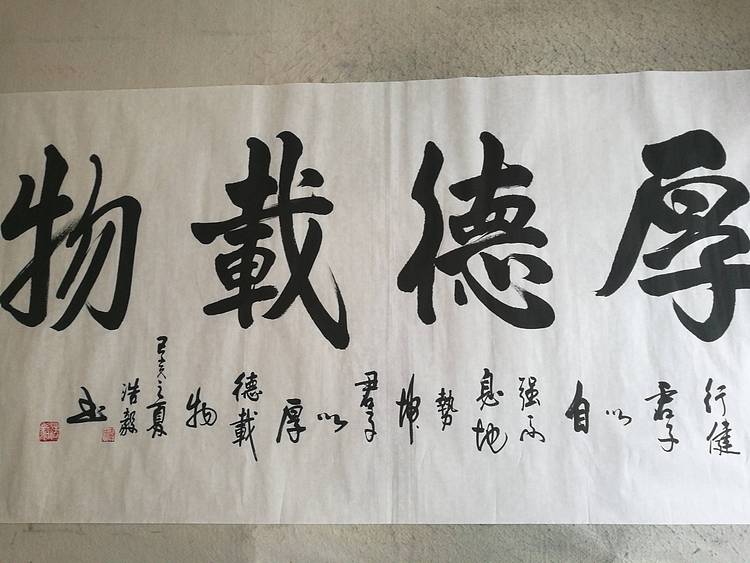 厚德載物
行健
君子
以
自
强不
息地
勢
坤
君子
以
厚
德載
物
己亥之夏
浩毅
书